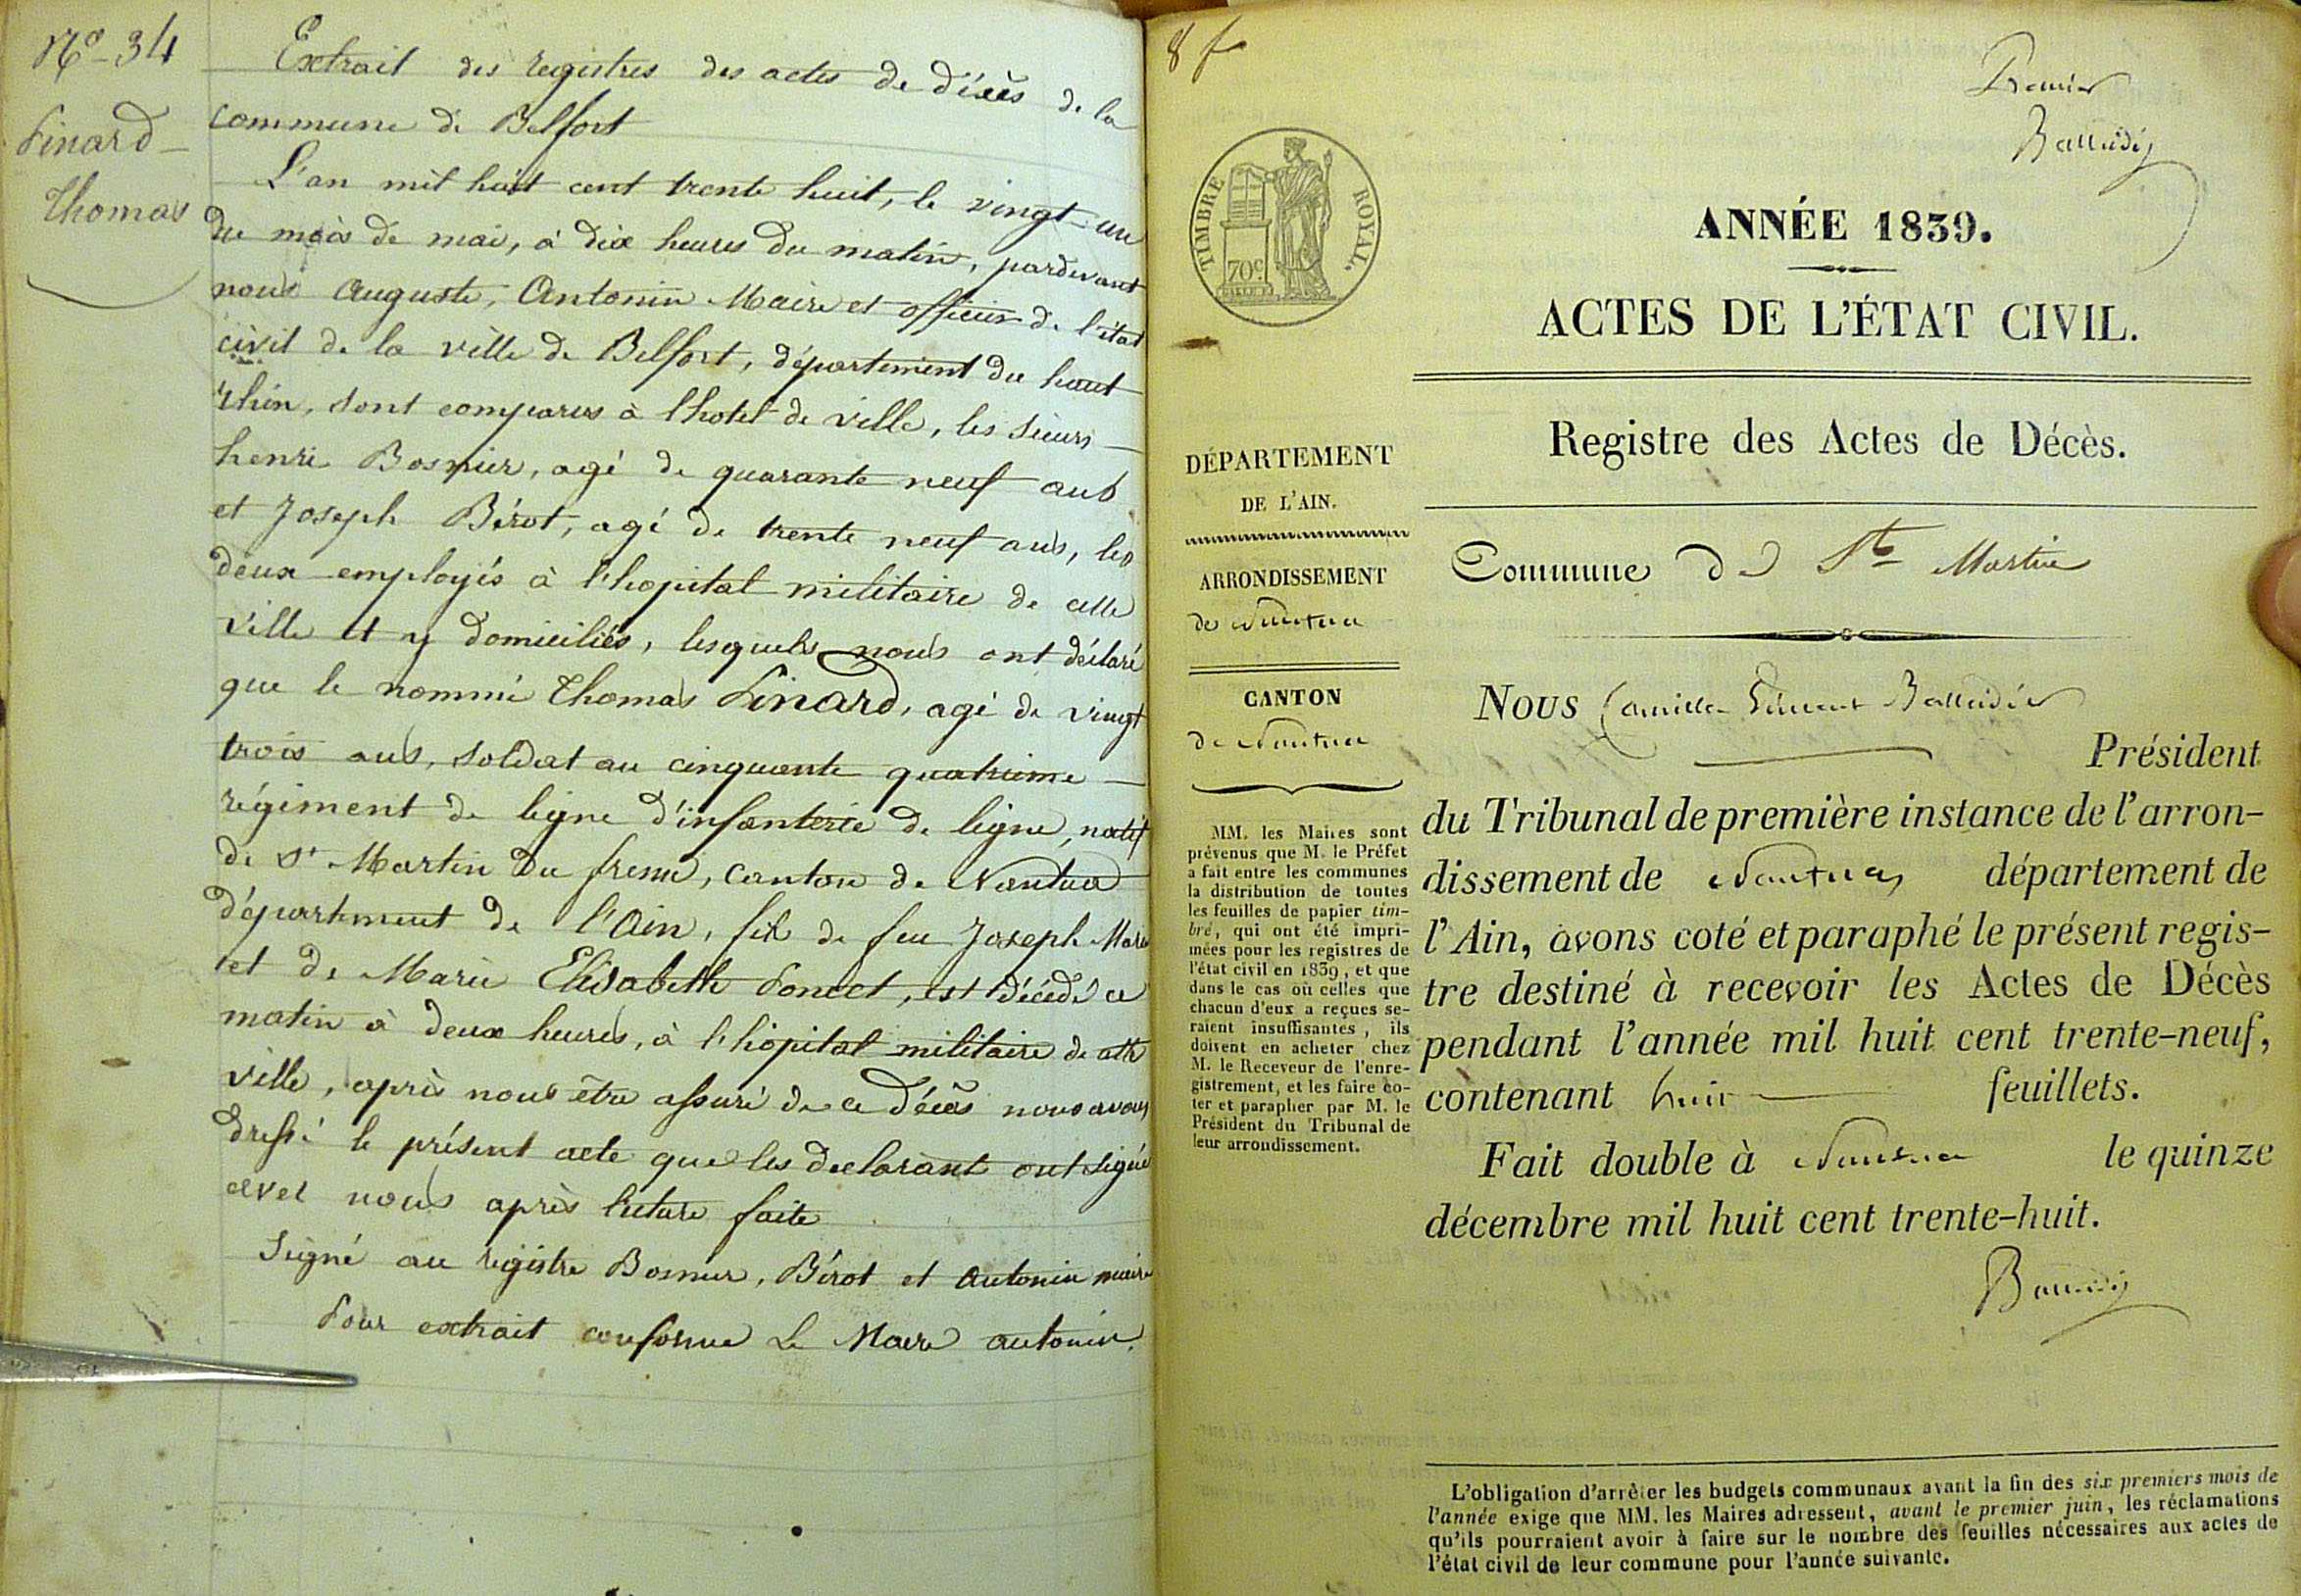 No 34
Pinard
Thomas
Extrait des registres des actes de décès de la
commune de Belfort
L'an mil huit cent trente huit, le vingt un
du mois de mai, à dix heures du matin, pardevant
nous Auguste, Antonin Maire et officier de l'état
civil de la ville de Belfort, département du haut
rhin, sont comparus à l'hotel de ville, les sieurs
henri Bosmier, agé de quarante neuf ans
et Joseph Bérot, agé de trente neuf ans, les
deux employés à l'hopital militaire de cette
ville et y domiciliés, lesquels nous ont déclaré
que le nommé Thomas Pinard, agé de vingt
trois ans, soldat au cinquante quatrieme
régiment de ligne d'infanterie de ligne, natif
de St Martin du fresne, canton de Nantua
département de l'Ain, fils de feu Joseph Marie
et de Marie Elisabeth Poncet, est décédé ce
matin à deux heures, à l'hôpital militaire de cette
ville, après nous être assuré de ce décès nous avons
dressé le présent acte que les declarant ont signé
avec nous après lecture faite
Signé au registre Bosmier, Bérot et Antonin maire
Pour extrait conforme Le Maire Antonin.
8 f
Premier
TIMBRE ROYAL.
70c
ANNÉE 1839.
ACTES DE L'ÉTAT CIVIL.
Registre des Actes de Décès.
DÉPARTEMENT
DE L'AIN.
ARRONDISSEMENT
de Nantua
CANTON
de Nantua
MM. les Maires sont
prévenus que M. le Préfet
a fait entre les communes
la distribution de toutes
les feuilles de papier tim-
bré, qui ont été impri-
mées pour les registres de
l'état civil en 1839, et que
dans le cas où celles que
chacun d'eux a reçues se-
raient insuffisantes, ils
doivent en acheter chez
M. le Receveur de l'enre-
gistrement, et les faire co-
ter et parapher par M. le
Président du Tribunal de
leur arrondissement.
Commune de St Martin
Nous Camille Vincent Balleidier
Président
du Tribunal de première instance de l'arron-
dissement de Nantua, département de
l'Ain, avons coté et paraphé le présent regis-
tre destiné à recevoir les Actes de Décès
pendant l'année mil huit cent trente-neuf,
contenant huit feuillets.
Fait double à Nantua le quinze
décembre mil huit cent trente-huit.
L'obligation d'arrêter les budgets communaux avant la fin des six premiers mois de
l'année exige que MM. les Maires adressent, avant le premier juin, les réclamations
qu'ils pourraient avoir à faire sur le nombre des feuilles nécessaires aux actes de
l'état civil de leur commune pour l'année suivante.